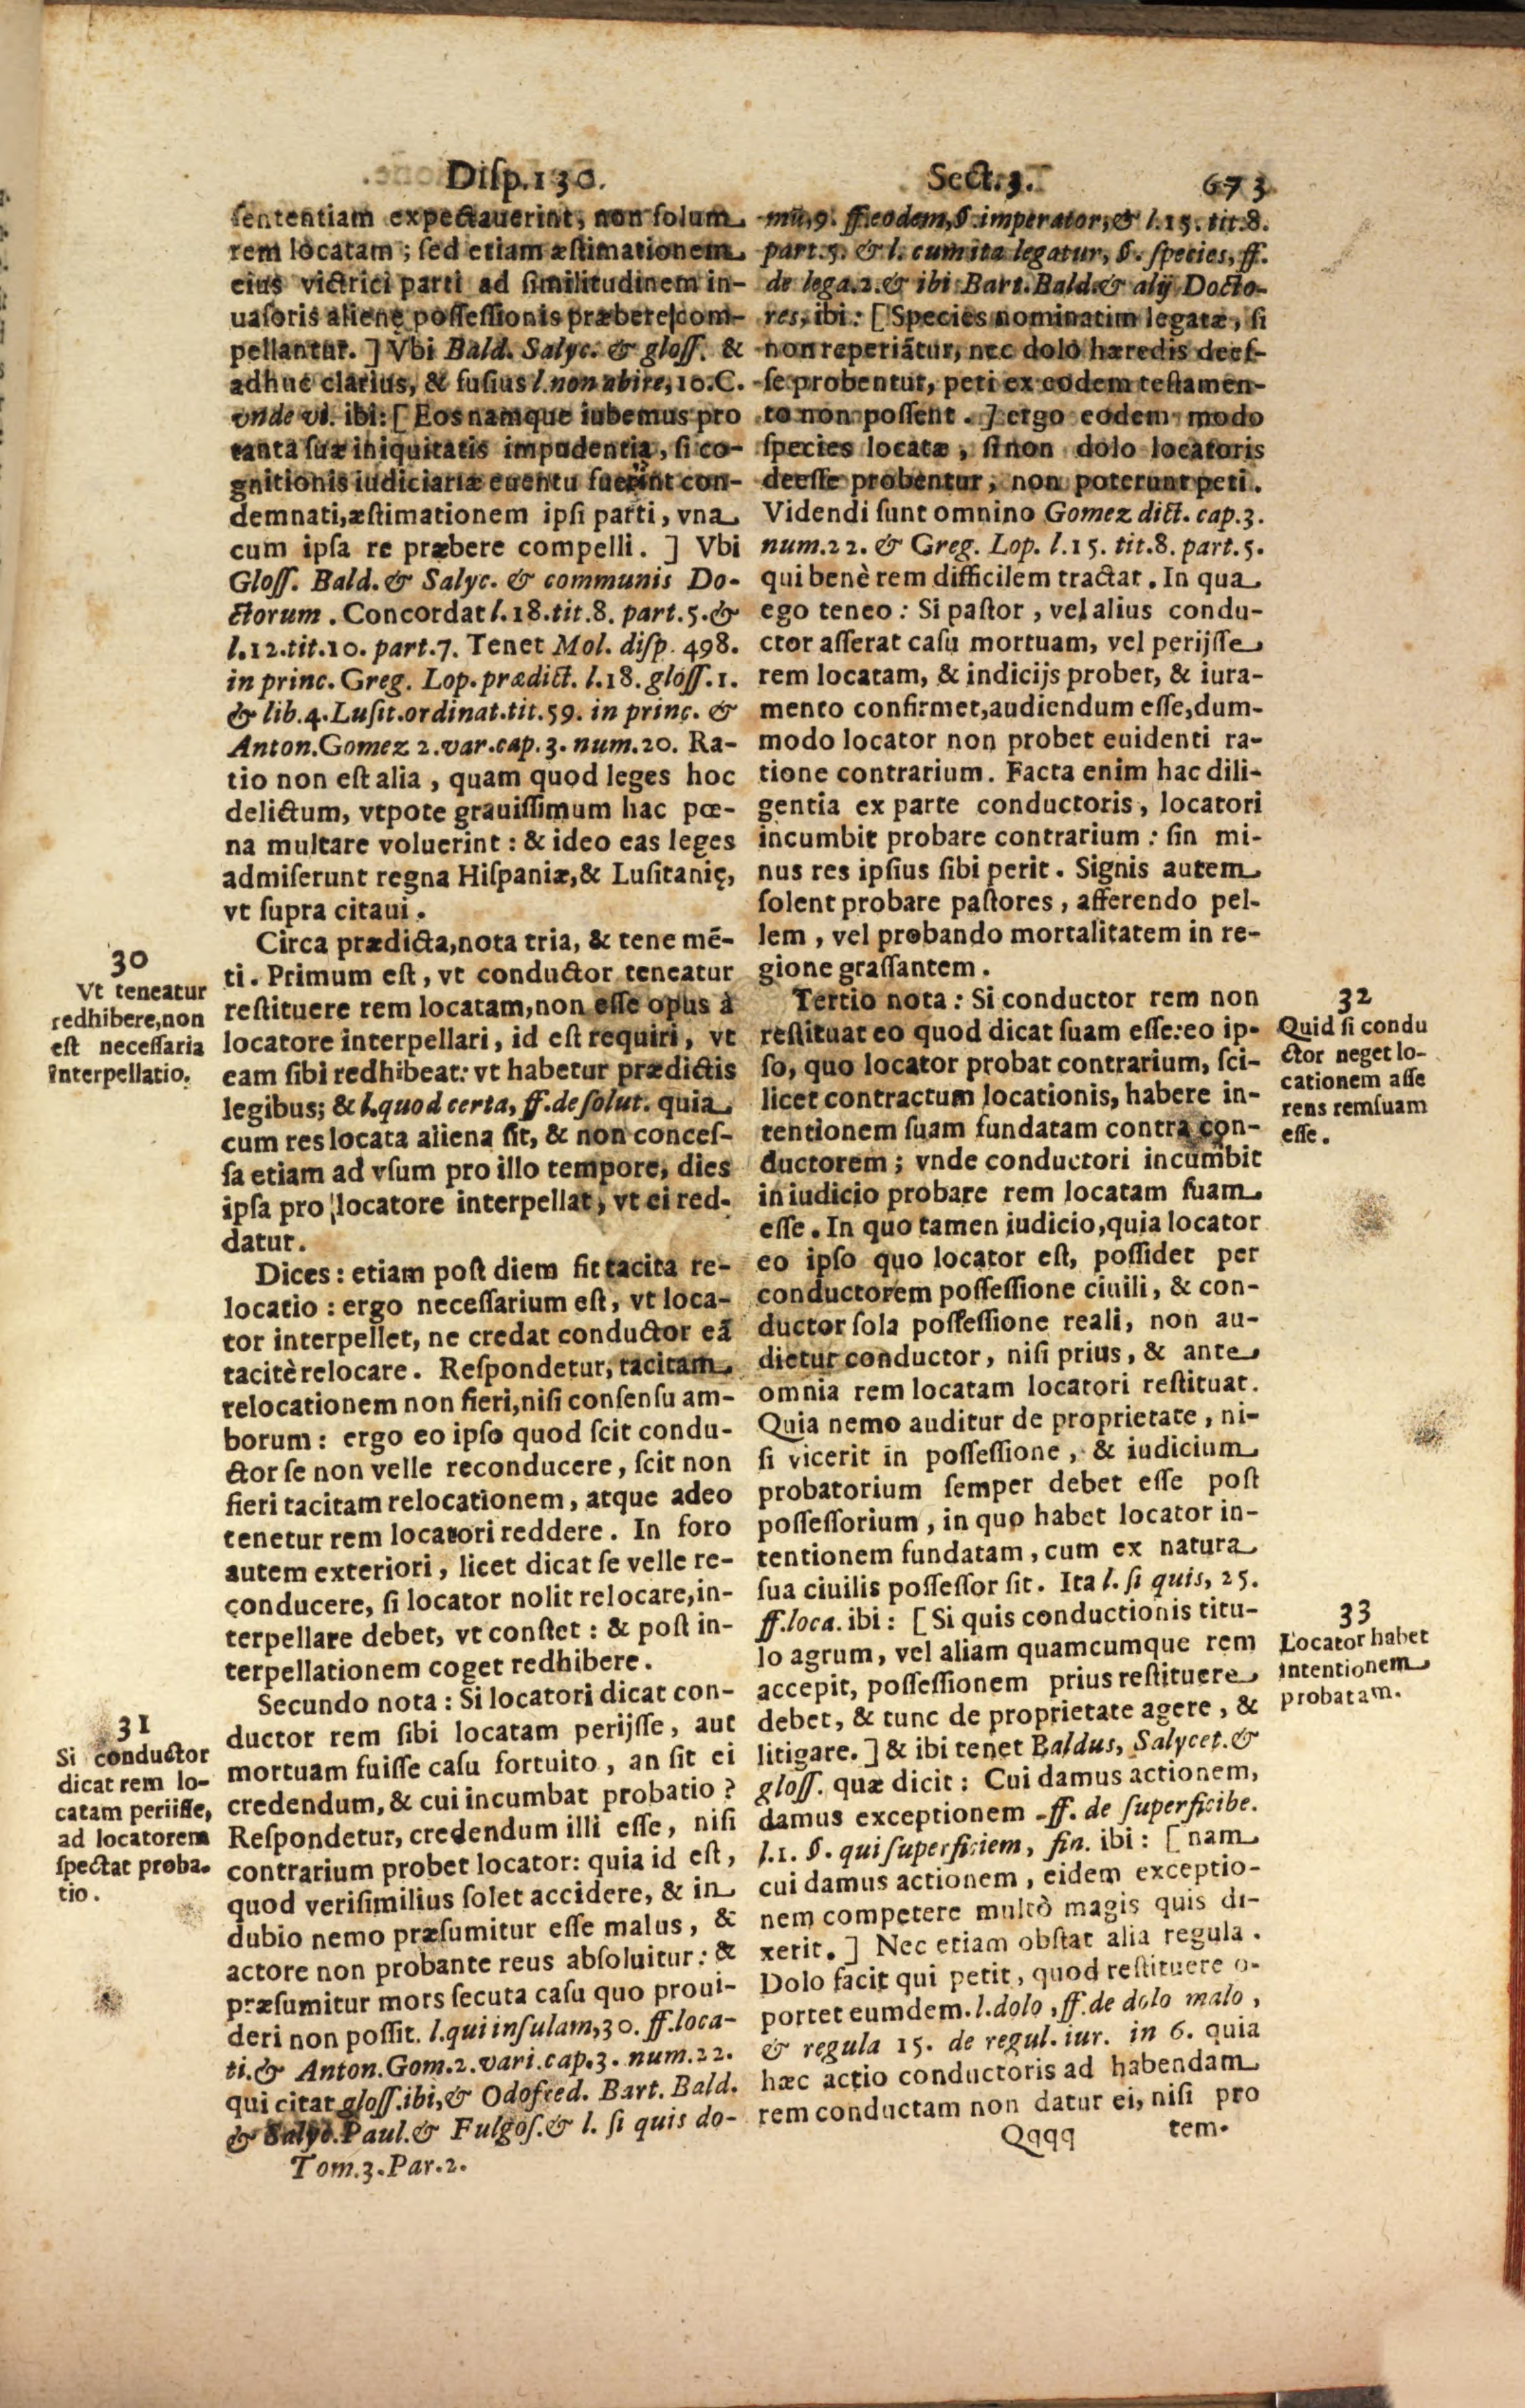 Diſp.130. Sect.3. 673
ſententiam expectauerint, non ſolum
rem locatam; ſed etiam æſtimationem
eius victrici parti ad ſimilitudinem in-
uaſoris alienę poſſeſſionis præbere com-
pellantur.] Vbi Bald. Salyc. & gloſſ. &
adhuc clarius, & fuſius l. non abire, 10. C.
vnde vi. ibi: [Eos namque iubemus pro
tanta ſuæ iniquitatis impudentia, ſi co-
gnitionis iudiciariæ euentu fuerint con-
demnati, æſtimationem ipſi parti, vna
cum ipſa re præbere compelli.] Vbi
Gloſſ. Bald. & Salyc. & communis Do-
ctorum. Concordat l.18. tit.8. part.5. &
l.12. tit.10. part.7. Tenet Mol. diſp. 498.
in princ. Greg. Lop. prædict. l.18. gloſſ.1.
& lib.4. Luſit. ordinat. tit.59. in princ. &
Anton. Gomez 2. var. cap.3. num.20. Ra-
tio non eſt alia, quam quod leges hoc
delictum, vtpote grauiſſimum hac pœ-
na multare voluerint: & ideo eas leges
admiſerunt regna Hiſpaniæ, & Luſitanię,
vt ſupra citaui.
30
Vt teneatur
redhibere, non
eſt neceſſaria
interpellatio.
Circa prædicta, nota tria, & tene mē-
ti. Primum eſt, vt conductor teneatur
reſtituere rem locatam, non eſſe opus à
locatore interpellari, id eſt requiri, vt
eam ſibi redhibeat: vt habetur prædictis
legibus; & l. quod certa, ff. de ſolut. quia
cum res locata aliena ſit, & non conceſ-
ſa etiam ad vſum pro illo tempore, dies
ipſa pro locatore interpellat, vt ei red-
datur.
Dices: etiam poſt diem fit tacita re-
locatio: ergo neceſſarium eſt, vt loca-
tor interpellet, ne credat conductor eā
tacitè relocare. Reſpondetur, tacitam
relocationem non fieri, niſi conſenſu am-
borum: ergo eo ipſo quod ſcit condu-
ctor ſe non velle reconducere, ſcit non
fieri tacitam relocationem, atque adeo
tenetur rem locatori reddere. In foro
autem exteriori, licet dicat ſe velle re-
conducere, ſi locator nolit relocare, in-
terpellare debet, vt conſtet: & poſt in-
terpellationem coget redhibere.
31
Si conductor
dicat rem lo-
catam periiſſe,
ad locatorem
ſpectat proba-
tio.
Secundo nota: Si locatori dicat con-
ductor rem ſibi locatam perijſſe, aut
mortuam fuiſſe caſu fortuito, an ſit ei
credendum, & cui incumbat probatio?
Reſpondetur, credendum illi eſſe, niſi
contrarium probet locator: quia id eſt,
quod veriſimilius ſolet accidere, & in
dubio nemo præſumitur eſſe malus, &
actore non probante reus abſoluitur: &
præſumitur mors ſecuta caſu quo proui-
deri non poſſit. l. qui inſulam, 30. ff. loca-
ti. & Anton. Gom. 2. vari. cap.3. num.22.
qui citat gloſſ. ibi, & Odofred. Bart. Bald.
& Salyc. Paul. & Fulgoſ. & l. ſi quis do-
Tom.3. Par.2.
mū, 9. ff. eodem, §. imperator, & l.15. tit.8.
part.5. & l. cum ita legatur, §. ſpecies, ff.
de lega.2. & ibi Bart. Bald. & alij Docto-
res, ibi: [Species nominatim legatæ, ſi
non reperiātur, nec dolo hæredis deeſ-
ſe probentur, peti ex eodem teſtamen-
to non poſſent.] ergo eodem modo
ſpecies locatæ, ſi non dolo locatoris
deeſſe probentur, non poterunt peti.
Videndi ſunt omnino Gomez dict. cap.3.
num.22. & Greg. Lop. l.15. tit.8. part.5.
qui benè rem difficilem tractat. In qua
ego teneo: Si paſtor, vel alius condu-
ctor aſſerat caſu mortuam, vel perijſſe
rem locatam, & indicijs probet, & iura-
mento confirmet, audiendum eſſe, dum-
modo locator non probet euidenti ra-
tione contrarium. Facta enim hac dili-
gentia ex parte conductoris, locatori
incumbit probare contrarium: ſin mi-
nus res ipſius ſibi perit. Signis autem
ſolent probare paſtores, afferendo pel-
lem, vel probando mortalitatem in re-
gione graſſantem.
Tertio nota: Si conductor rem non
reſtituat eo quod dicat ſuam eſſe: eo ip-
ſo, quo locator probat contrarium, ſci-
licet contractum locationis, habere in-
tentionem ſuam fundatam contra con-
ductorem; vnde conductori incumbit
in iudicio probare rem locatam ſuam
eſſe. In quo tamen iudicio, quia locator
eo ipſo quo locator eſt, poſſidet per
conductorem poſſeſſione ciuili, & con-
ductor ſola poſſeſſione reali, non au-
dietur conductor, niſi prius, & ante
omnia rem locatam locatori reſtituat.
Quia nemo auditur de proprietate, ni-
ſi vicerit in poſſeſſione, & iudicium
probatorium ſemper debet eſſe poſt
poſſeſſorium, in quo habet locator in-
tentionem fundatam, cum ex natura
ſua ciuilis poſſeſſor ſit. Ita l. ſi quis, 25.
ff. loca. ibi: [Si quis conductionis titu-
lo agrum, vel aliam quamcumque rem
accepit, poſſeſſionem prius reſtituere
debet, & tunc de proprietate agere, &
litigare.] & ibi tenet Baldus, Salycet. &
gloſſ. quæ dicit: Cui damus actionem,
damus exceptionem ff. de ſuperficibe.
l.1. §. qui ſuperficiem, fin. ibi: [nam
cui damus actionem, eidem exceptio-
nem competere multò magis quis di-
xerit.] Nec etiam obſtat alia regula.
Dolo facit qui petit, quod reſtituere o-
portet eumdem. l. dolo, ff. de dolo malo,
& regula 15. de regul. iur. in 6. quia
hæc actio conductoris ad habendam
rem conductam non datur ei, niſi pro
Qqqq tem-
32
Quid ſi condu
ctor neget lo-
cationem aſſe
rens rem ſuam
eſſe.
33
Locator habet
intentionem
probatam.